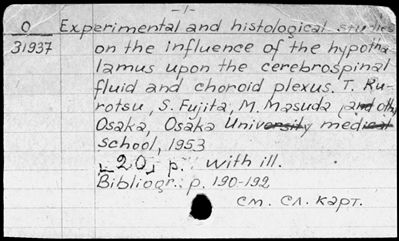 -1-
O Experimental and histological studies
31937 on the influence of the hypotha
lamus upon the cerebrospinal
fluid and choroid plexus. T. Ku-
rotsu, S. Fujita, M. Masuda (and oth)
Osaka, Osaka University medical
school, 1953
[20] p. with ill.
Bibliogr.: p. 190-192
см. сл. карт.